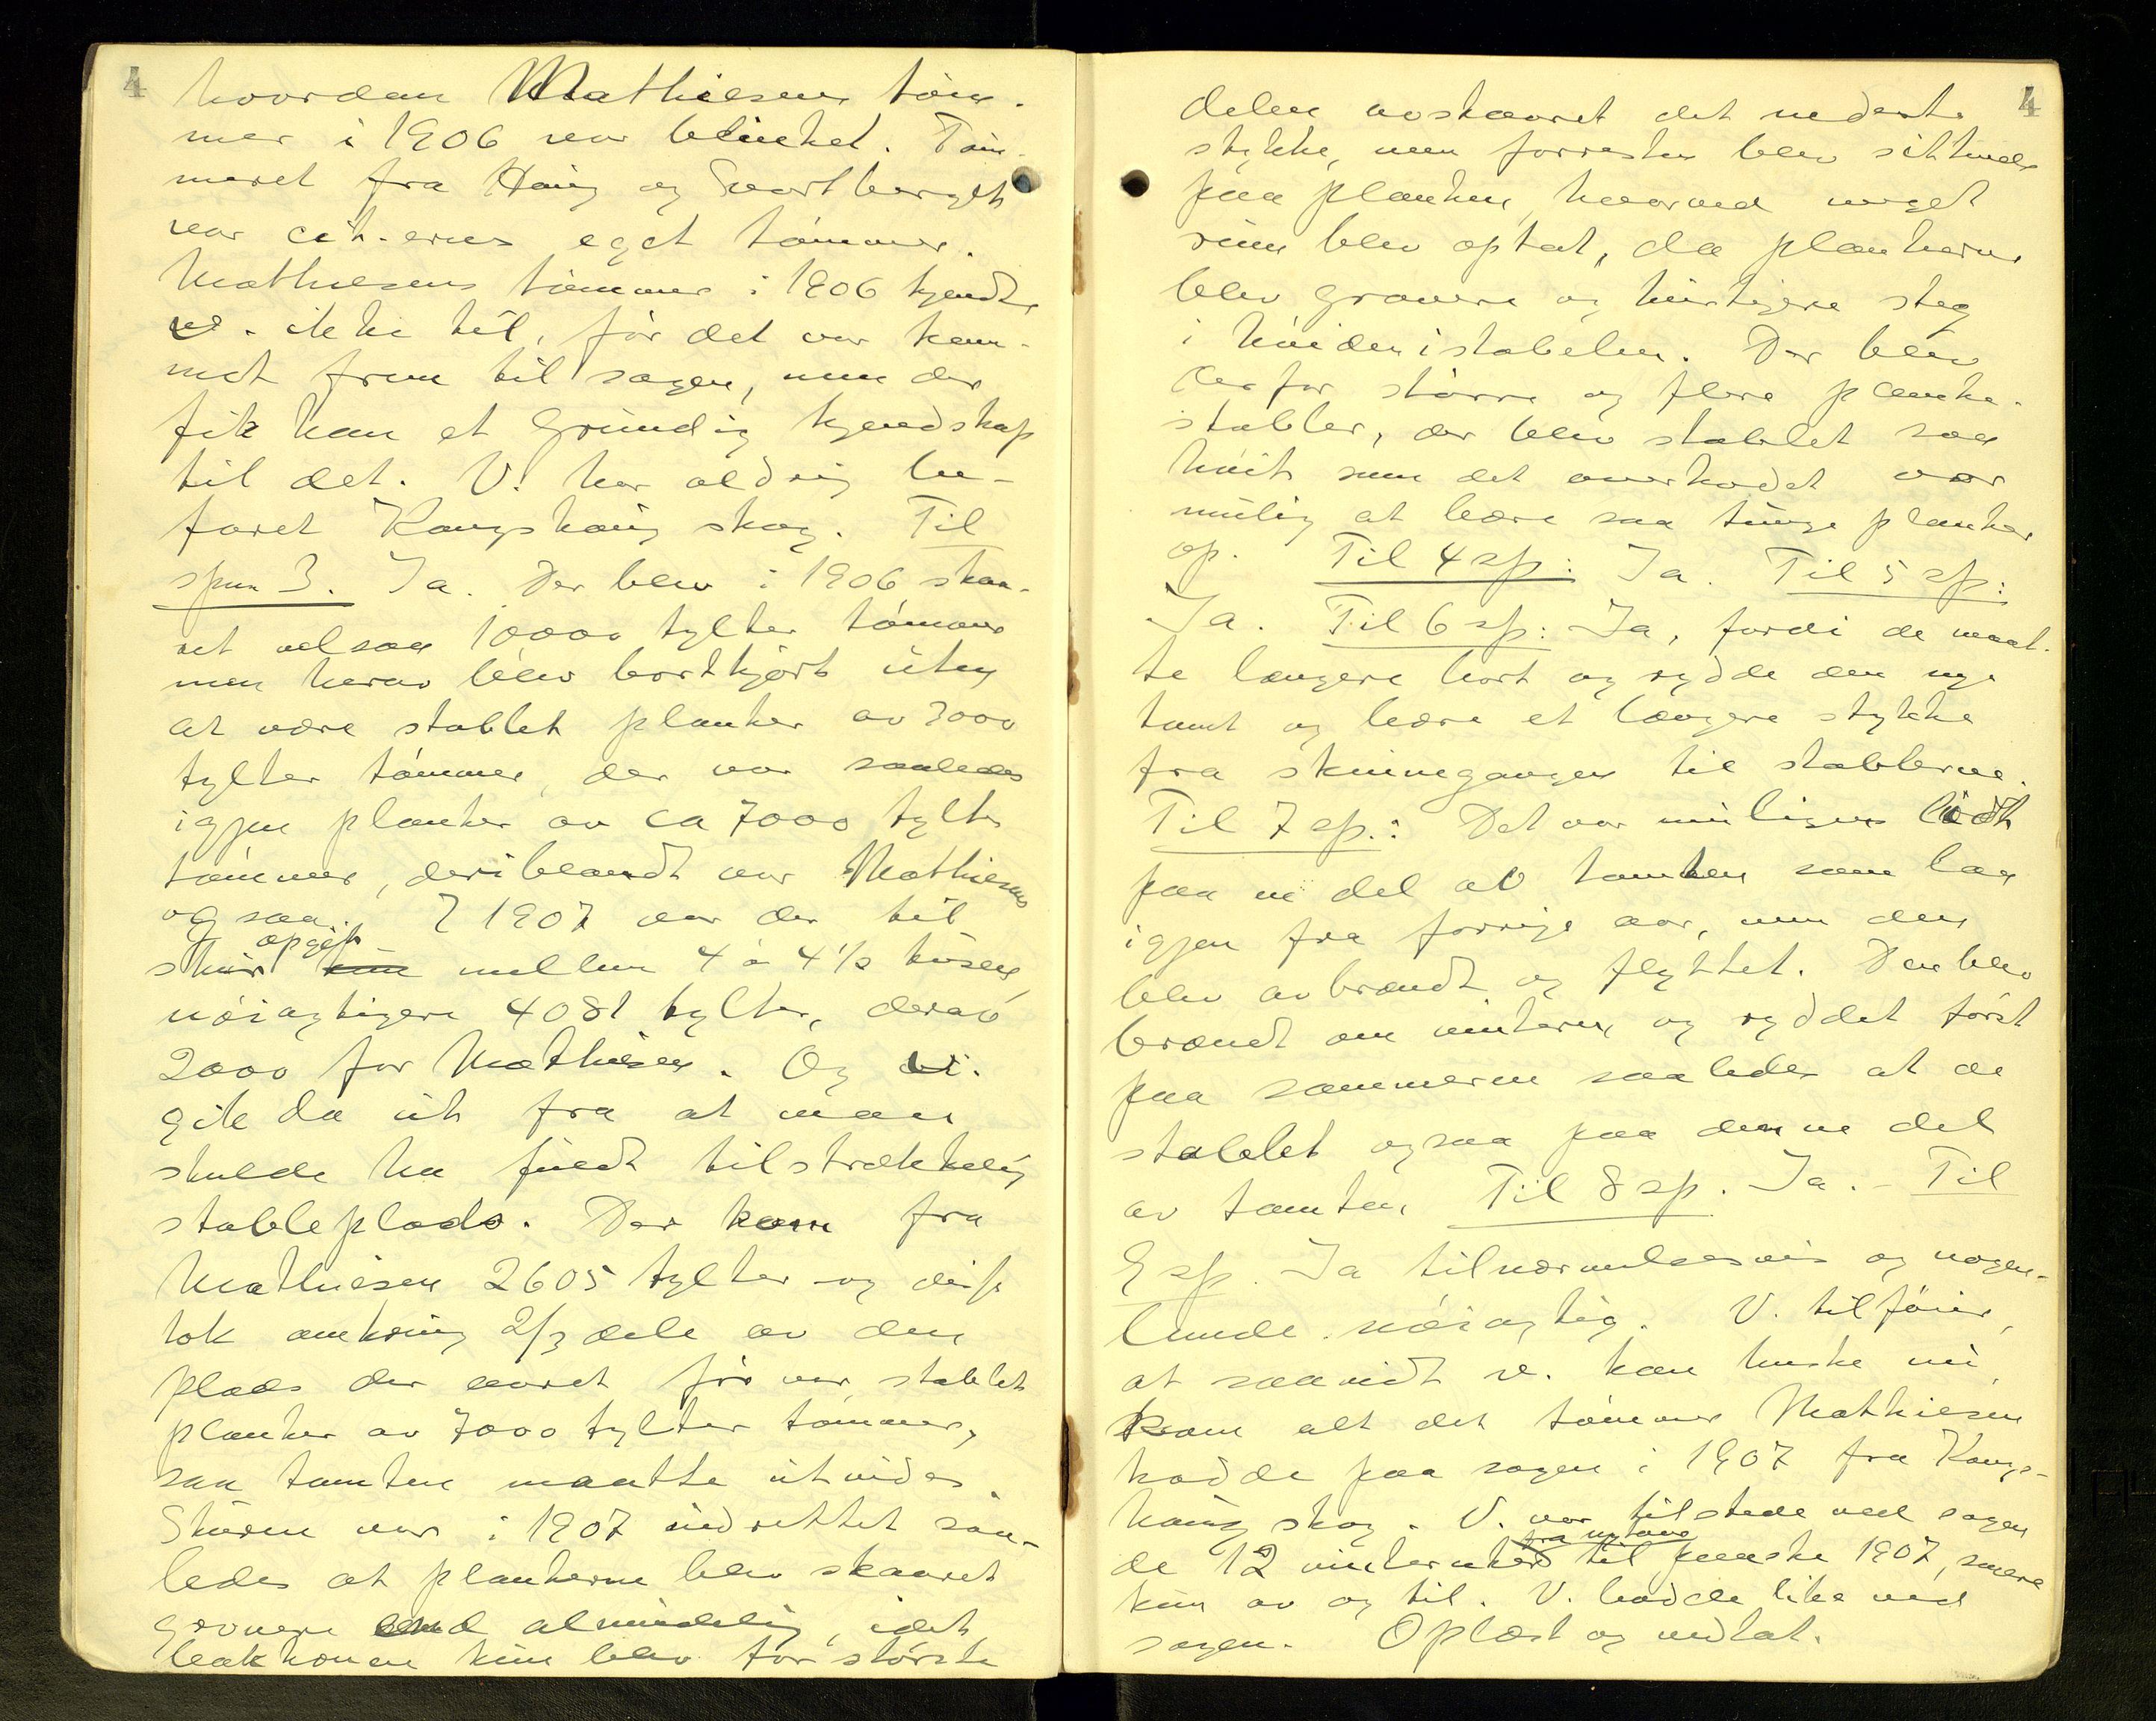 4
hvordan Mathiesens töm-
mer i 1906 var blinket. Töm-
meret fra Haug og Svartberget
var cit.ernes eget tömmer.
Mathiesens tömmer i 1906 kjendte
v. ikke til, för det var kom-
met frem til sagen, men der
fik han et grundig kjendskap
til det. V. har aldrig be-
faret Kongshaug skog. Til
spm 3. Ja. Der blev i 1906 skaa-
ret velsaa 10000 tylter tömmer
men herav blev bortkjört uten
at være stablet planker av 3000
tylter tömmer, der var saaledes
igjen planker av ca 7000 tylter
tömmer, deriblandt var Mathiesens
ogsaa. I 1907 var der til
skur opgit mellem 4 à 4 1/2 tusen,
nöiagtigere 4081 tylter, derav
2000 for Mathiesen. Og vi
gik da ut fra at man
skulde ha fuldt tilstrækkelig
stableplads. Der kom fra
Mathiesen 2605 tylter og disse
tok omkring 2/3 dele av den
plads der aaret för var stablet
planker av 7000 tylter tömmer,
saa tomten maatte utvides.
Skuren var i 1907 indrettet saa-
ledes at plankerne blev skaaret
grovere end almindelig, idet
bakhonen kun blev for störste
4
delen avskaaret det nederste
stykke, men forresten blev sittende
paa planken, hvorved meget
rum blev optat, da plankerne
blev grovere og hurtigere steg
i höiden i stabelen. Der blev
derfor större og flere planke-
stabler, der blev stablet saa
höit som det overhodet var
mulig at bære saa tunge planker
op. Til 4 sp: Ja. Til 5 sp:
Ja. Til 6 sp: Ja, fordi de maat-
te længere bort og rydde den nye
tomt og bære et længere stykke
fra skinnegangen til stablerne.
Til 7 sp.: Det var muligens lidt
paa en del av tomten som laa
igjen fra forrige aar, men den
blev avbrændt og flyttet. Den blev
brændt om vinteren og ryddet först
paa sommeren saaledes at de
stablet ogsaa paa denne del
av tomten. Til 8 sp. Ja. - Til
9 sp. Ja tilnærmelsesvis og nogen-
lunde nöiagtig. V. tilföier,
at saavidt v. kan huske nu
kom alt det tömmer Mathiesen
hadde paa sagen i 1907 fra Kongs-
haug skog. V. var tilstede ved sagen
de 12 fra nytaar til paaske 1907, senere
kun av og til. V. bodde like ved
sagen. Oplæst og vedtat.